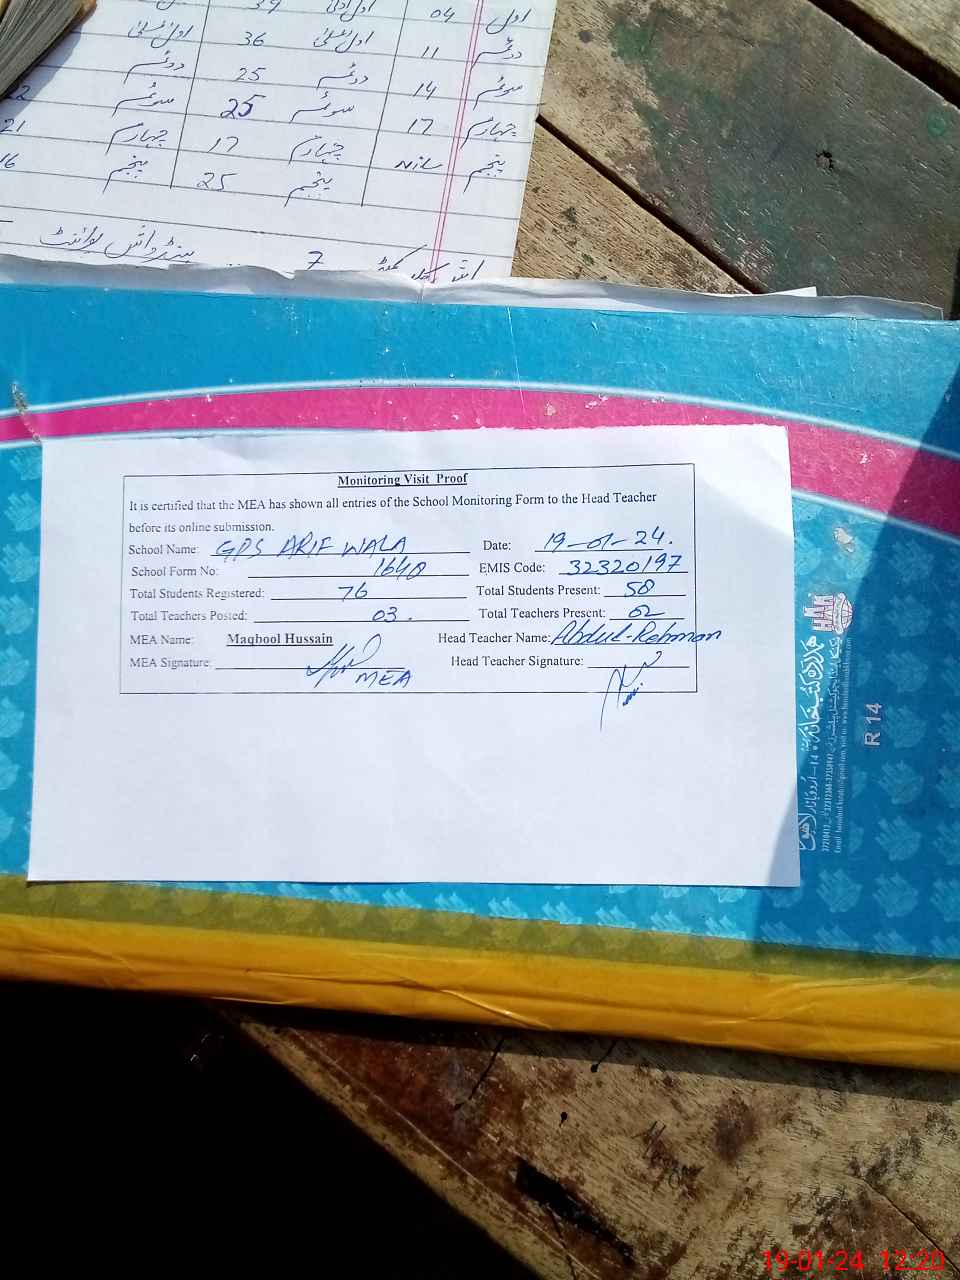 اول 04 اول ادنیٰ 39
دوئم 11 اول اعلیٰ 36 اول اعلیٰ
سوئم 14 دوئم 25 دوئم
چہارم 17 سوئم 25 سوئم 22
پنجم Nil چہارم 17 چہارم 21
پنجم 25 پنجم 16
7 ہینڈ واش پوائنٹ
Monitoring Visit Proof
It is certified that the MEA has shown all entries of the School Monitoring Form to the Head Teacher
before its online submission.
School Name: GPS ARIF WALA Date: 19-01-24.
School Form No: 1640 EMIS Code: 32320197
Total Students Registered: 76 Total Students Present: 58
Total Teachers Posted: 03. Total Teachers Present: 02
MEA Name: Maqbool Hussain Head Teacher Name: Abdul-Rehman
MEA Signature: MEA Head Teacher Signature:
HAK
ہمدرد کتب خانہ
14-اردو بازار لاہور
R 14
19-01-24 12:20